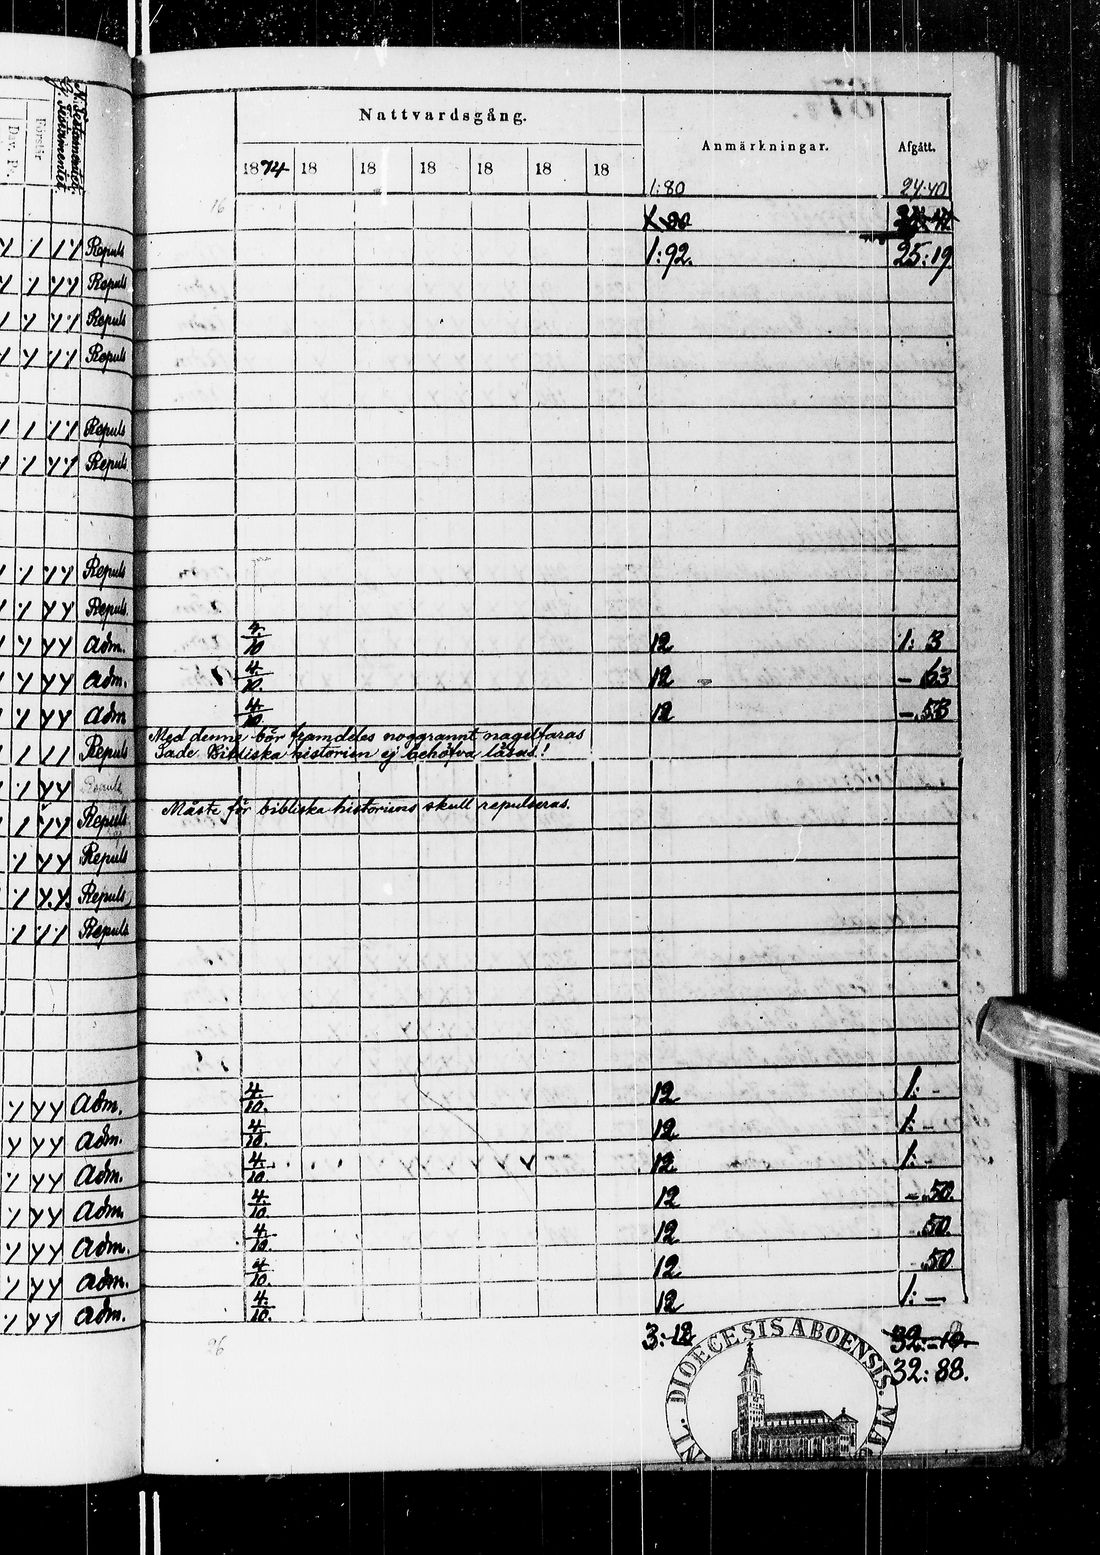 N. Testamentet.
G. Testamentet.
Förstår
Dav. Ps.
Nattvardsgång.
Anmärkningar.
Afgått.
1874 18 18 18 18 18 18
1:80 24:40
16
Repuls 1:92. 25:19
Repuls
Repuls
Repuls
Repuls
Repuls
Repuls
Repuls.
Adm. 4/10 12 1: 3
Adm. 4/10. 12 – 63
Adm 4/10 12 –.53
Med denne bör framdeles noggrannt nagelfaras
Repuls Sade Bibliska historien ej behöfva läsas!
Repuls
Måste för bibliska historiens skull repulseras.
Repuls
Repuls
Repuls
Repuls
Adm. 4./10. 12 1: –
Adm. 4/10. 12 1: –
Adm. 4/10. 12 1: –
Adm. 4/10 12 –.50.
Adm. 4/10. 12 .50.
Adm. 4/10. 12 .50
Adm. 4./10. 12 1: –
26
3:12 32:-10.
32:88.
NL. DIOECESIS ABOENSIS. MA